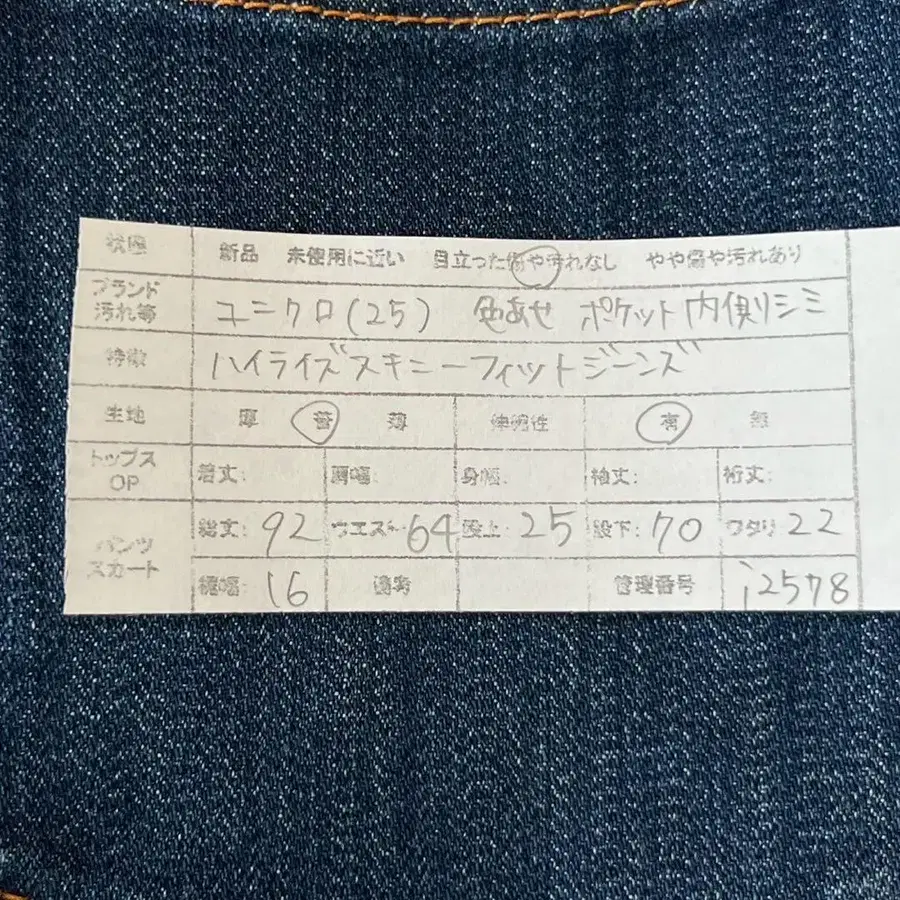 状態 新品 未使用に近い 目立った傷や汚れなし やや傷や汚れあり
ブランド 汚れ等 ユニクロ(25) 色あせ ポケット内側シミ
特徴 ハイライズスキニーフィットジーンズ
生地 厚 普 薄 伸縮性 有 無
トップス OP 着丈: 肩幅: 身幅: 袖丈: 裄丈:
パンツ スカート 総丈: 92 ウエスト: 64 股上: 25 股下: 70 ワタリ: 22
裾幅: 16 備考 管理番号 i2578